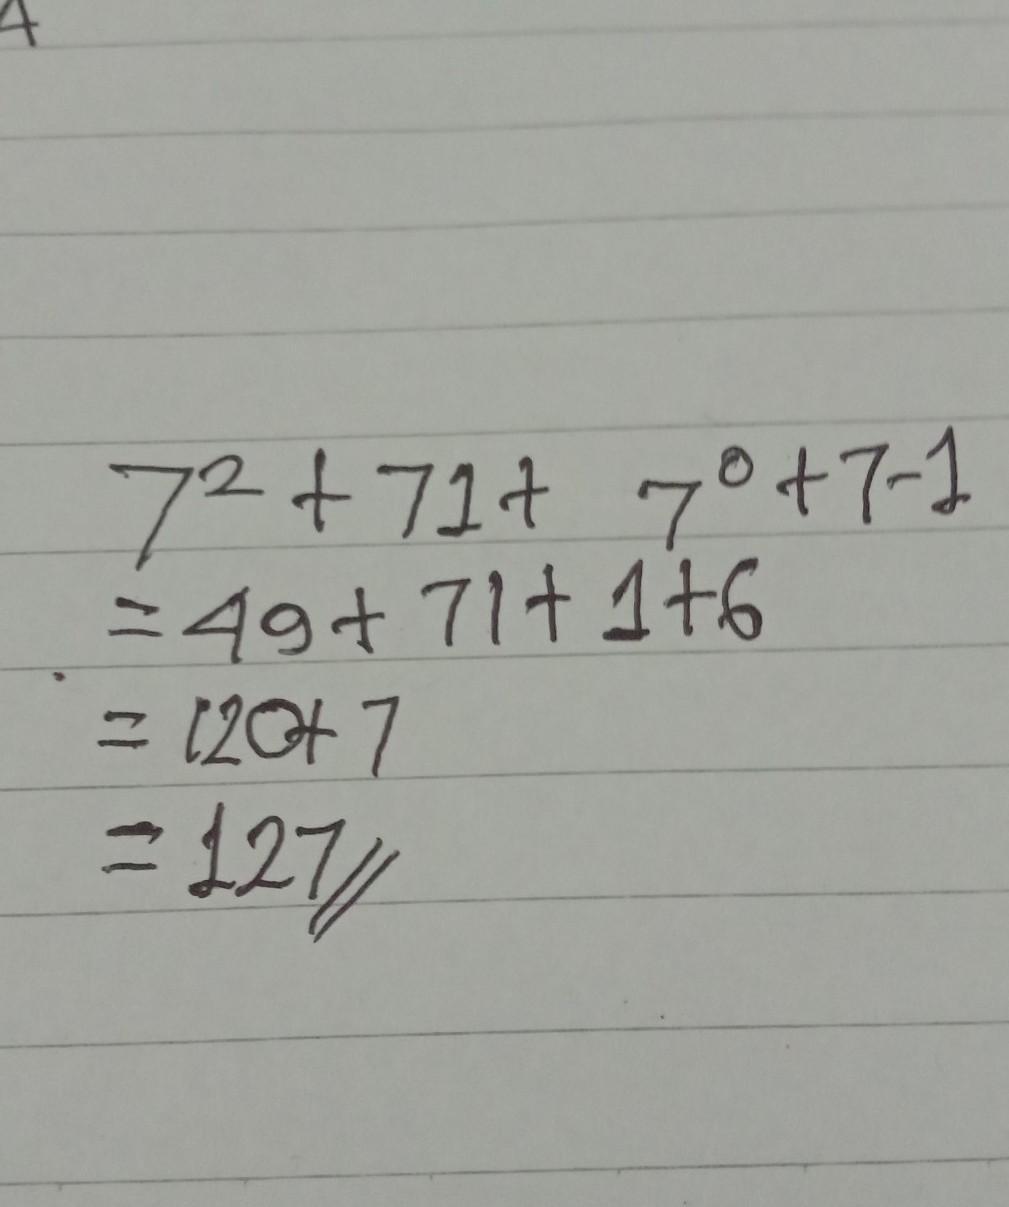 4
7² + 71 + 7⁰ + 7 - 1
= 49 + 71 + 1 + 6
= 120 + 7
= 127//